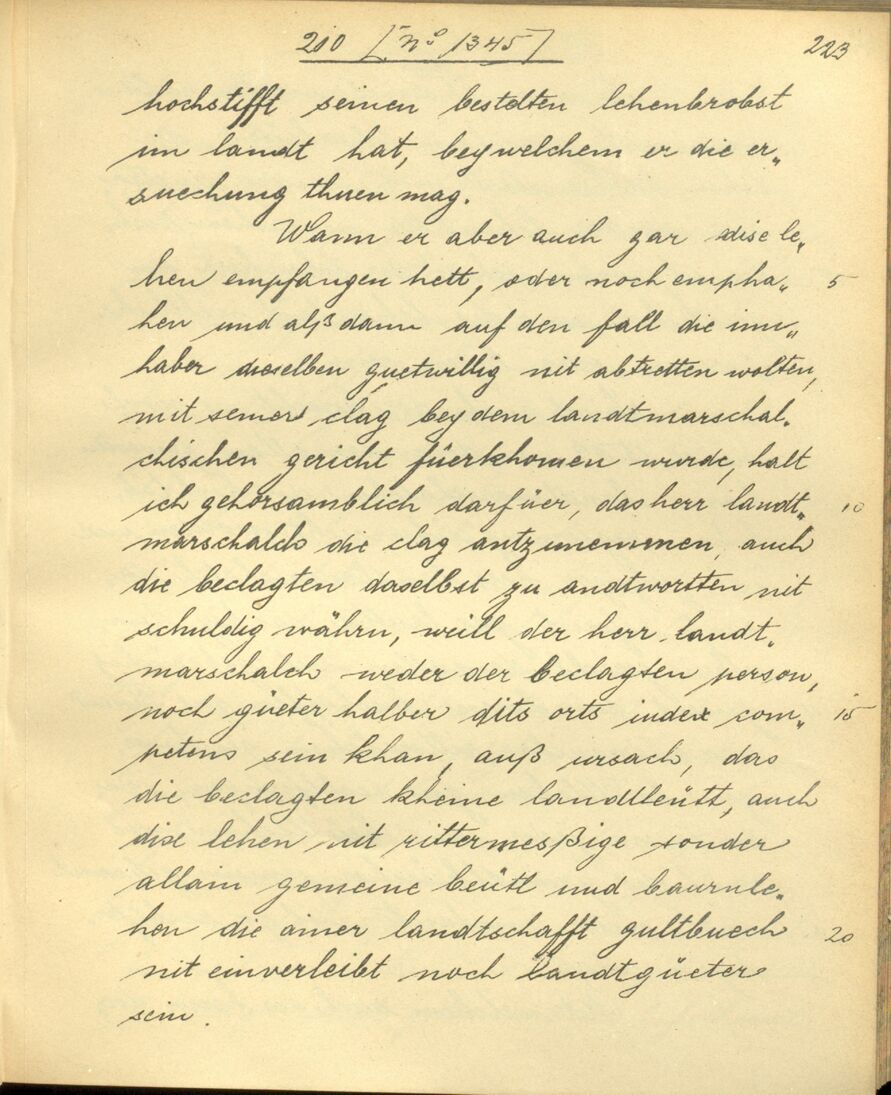 210 [nº 1345] 223
hochstifft seinen bestelten lehenbrobst
im landt hat, bey welchem er die er„
suechung thuen mag.
Wann er aber auch gar dise le„
hen empfangen hett, oder noch empha„ 5
hen und alß dann auf den fall die inn„
haber dieselben guetwillig nit abtretten wolten,
mit seiner clag bey dem landtmarschal„
chischen gericht füerkhomen wurde, halt
ich gehorsamblich darfüer, das herr landt„ 10
marschalch die clag antzunemmen, auch
die beclagten daselbst zu andtwortten nit
schuldig währn, weill der herr landt„
marschalch weder der beclagten person,
noch güeter halber dits orts iudex com„ 15
petens sein khan, auß ursach, das
die beclagten kheine landtleütt, auch
dise lehen nit rittermeßige sonder
allain gemeine beütl und baurnle„
hen die ainer landtschafft gultbuech 20
nit einverleibt noch landtgüeter
sein.